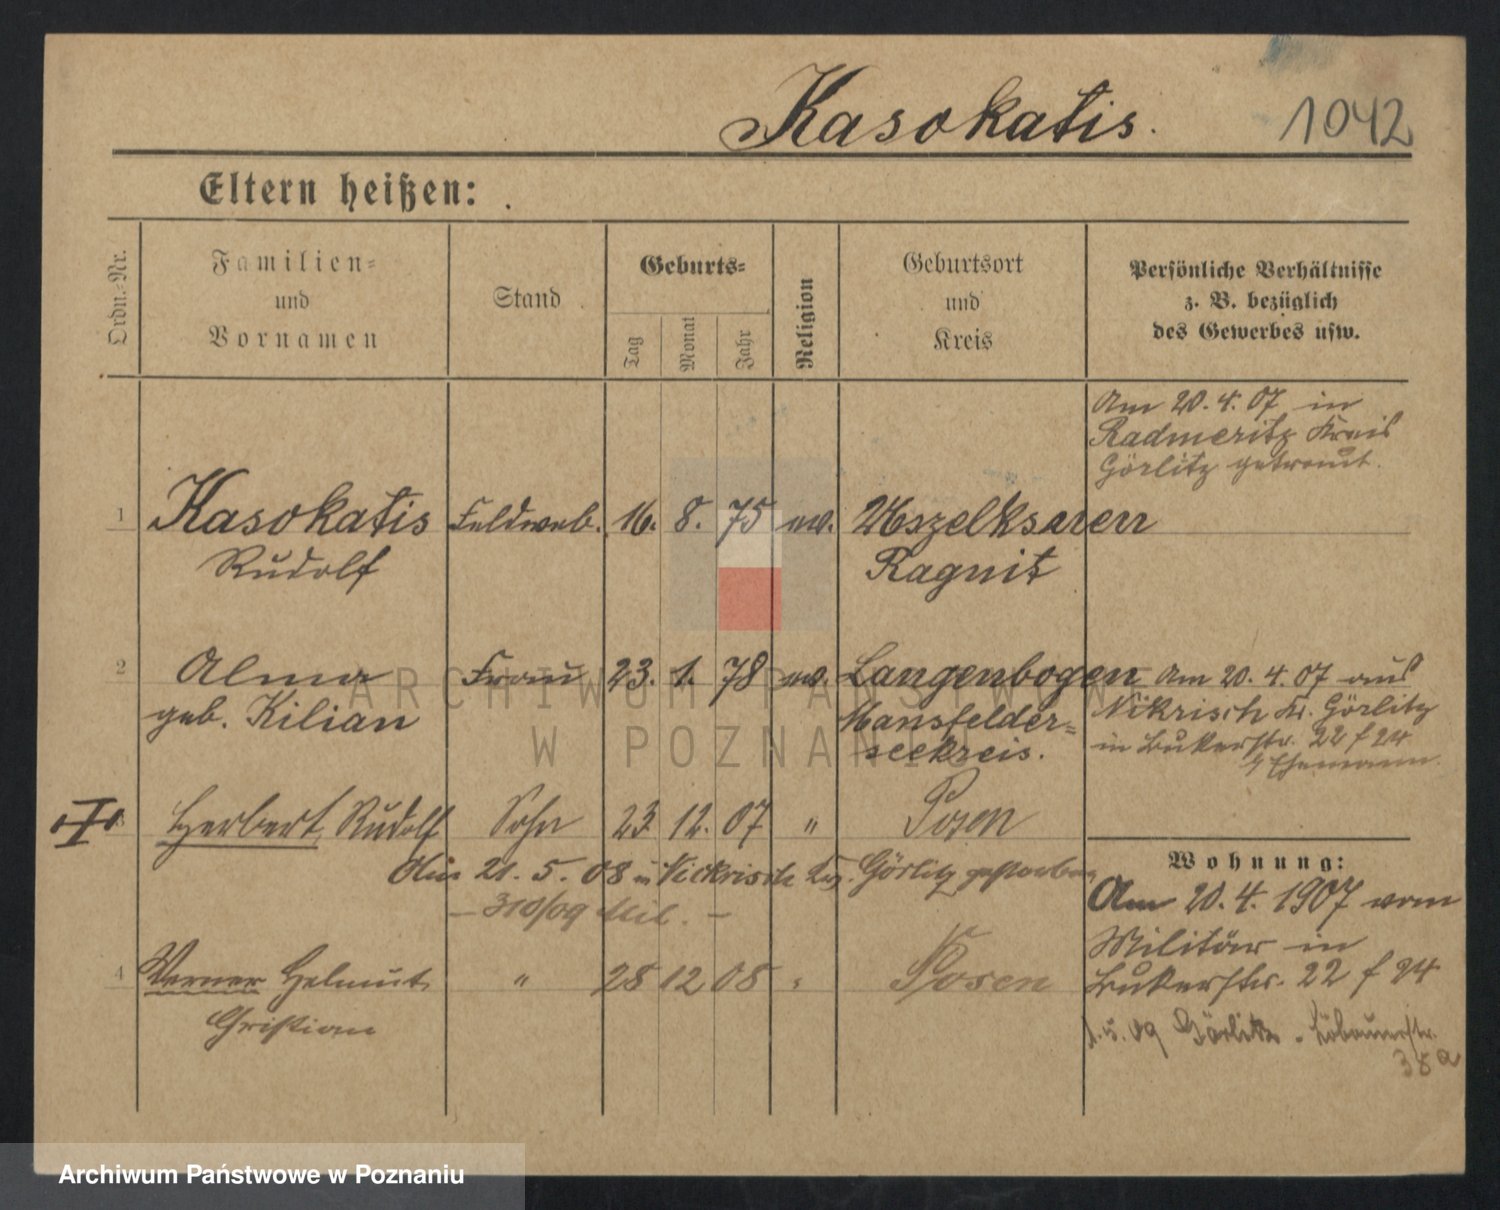 Kasokatis.
1042
Eltern heißen:
Ordn.-Nr.
Familien-
und
Vornamen
Stand
Geburts-
Tag
Monat
Jahr
Religion
Geburtsort
und
Kreis
Persönliche Verhältnisse
z. B. bezüglich
des Gewerbes usw.
Am 20. 4. 07 in
Radmeritz Kreis
Görlitz getraut.
1 Kasokatis Feldweb. 16. 8. 75 ev.
Rudolf
Ragnit
2 Alma Frau 23. 1. 78 ev. Langenbogen
geb. Kilian
Mansfelder-
seekreis.
Am 20. 4. 07 aus
Nikrisch Kr. Görlitz
in Bukerstr. 22 f 24
z/ Ehemann.
3 Herbert, Rudolf Sohn 23 12. 07 " Posen
Am 21. 5. 08 in Nickrisch Görlitz gestorben
– 310/09 Mil. –
4 Werner Helmut " 28 12 08 " Posen
Christian
Wohnung:
Am 20. 4. 1907 vom
Militär in
Bukerstr. 22 f 24
1. 5. 09 Görlitz - Löbauerstr.
38a
ARCHIWUM PAŃSTWOWE
W POZNANIU
Archiwum Państwowe w Poznaniu